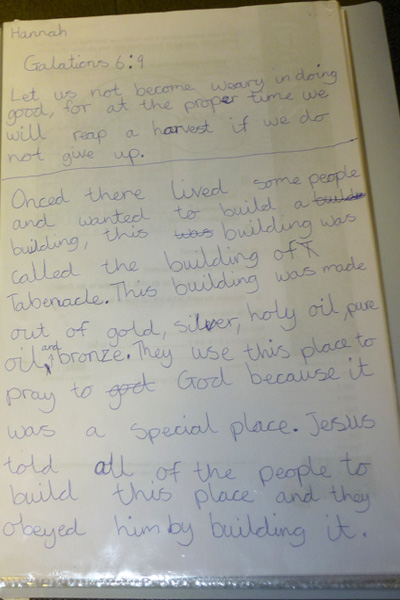 Hannah
Galations 6:9
Let us not become weary in doing
good, for at the proper time we
will reap a harvest if we do
not give up.
Onced there lived some people
and wanted to build a
building, this was building was
called the building of T
Tabenacle. This building was made
out of gold, silver, holy oil, pure
oil, and bronze. They use this place to
pray to god God because it
was a special place. Jesus
told all of the people to
build this place and they
obeyed him by building it.